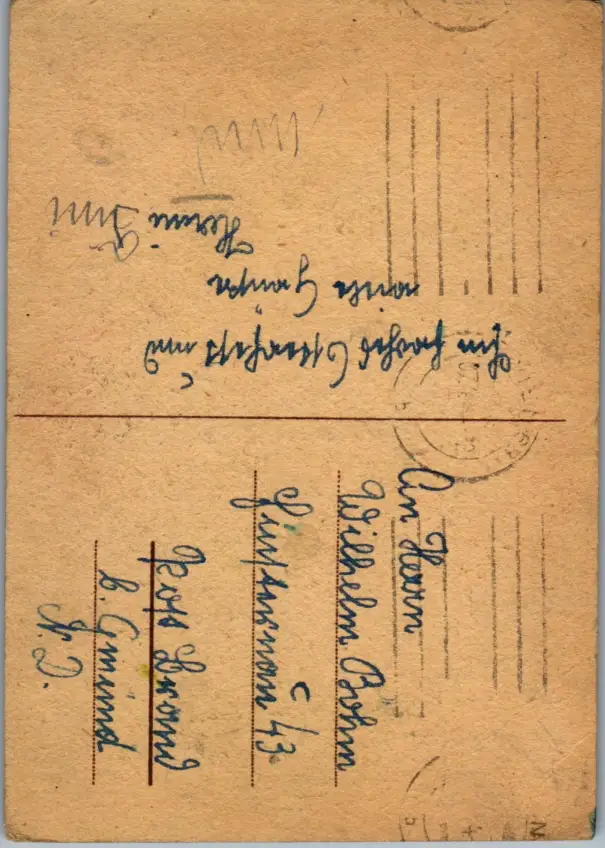 Ein frohes Osterfest und
viele Grüße
Hermi Fini
An Herrn
Wilhelm Bohm
Finsternau 43
Post Brand
b. Gmünd
N. D.